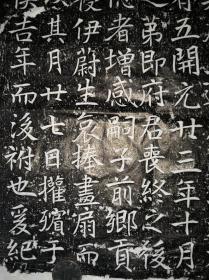 有五開元廿三年十月
之弟即府君喪終之後
德者增感嗣子前鄉貢
復伊蔚生哀捧畫扇而
以其月廿七日權殯于
俟吉年而後祔也爰紀